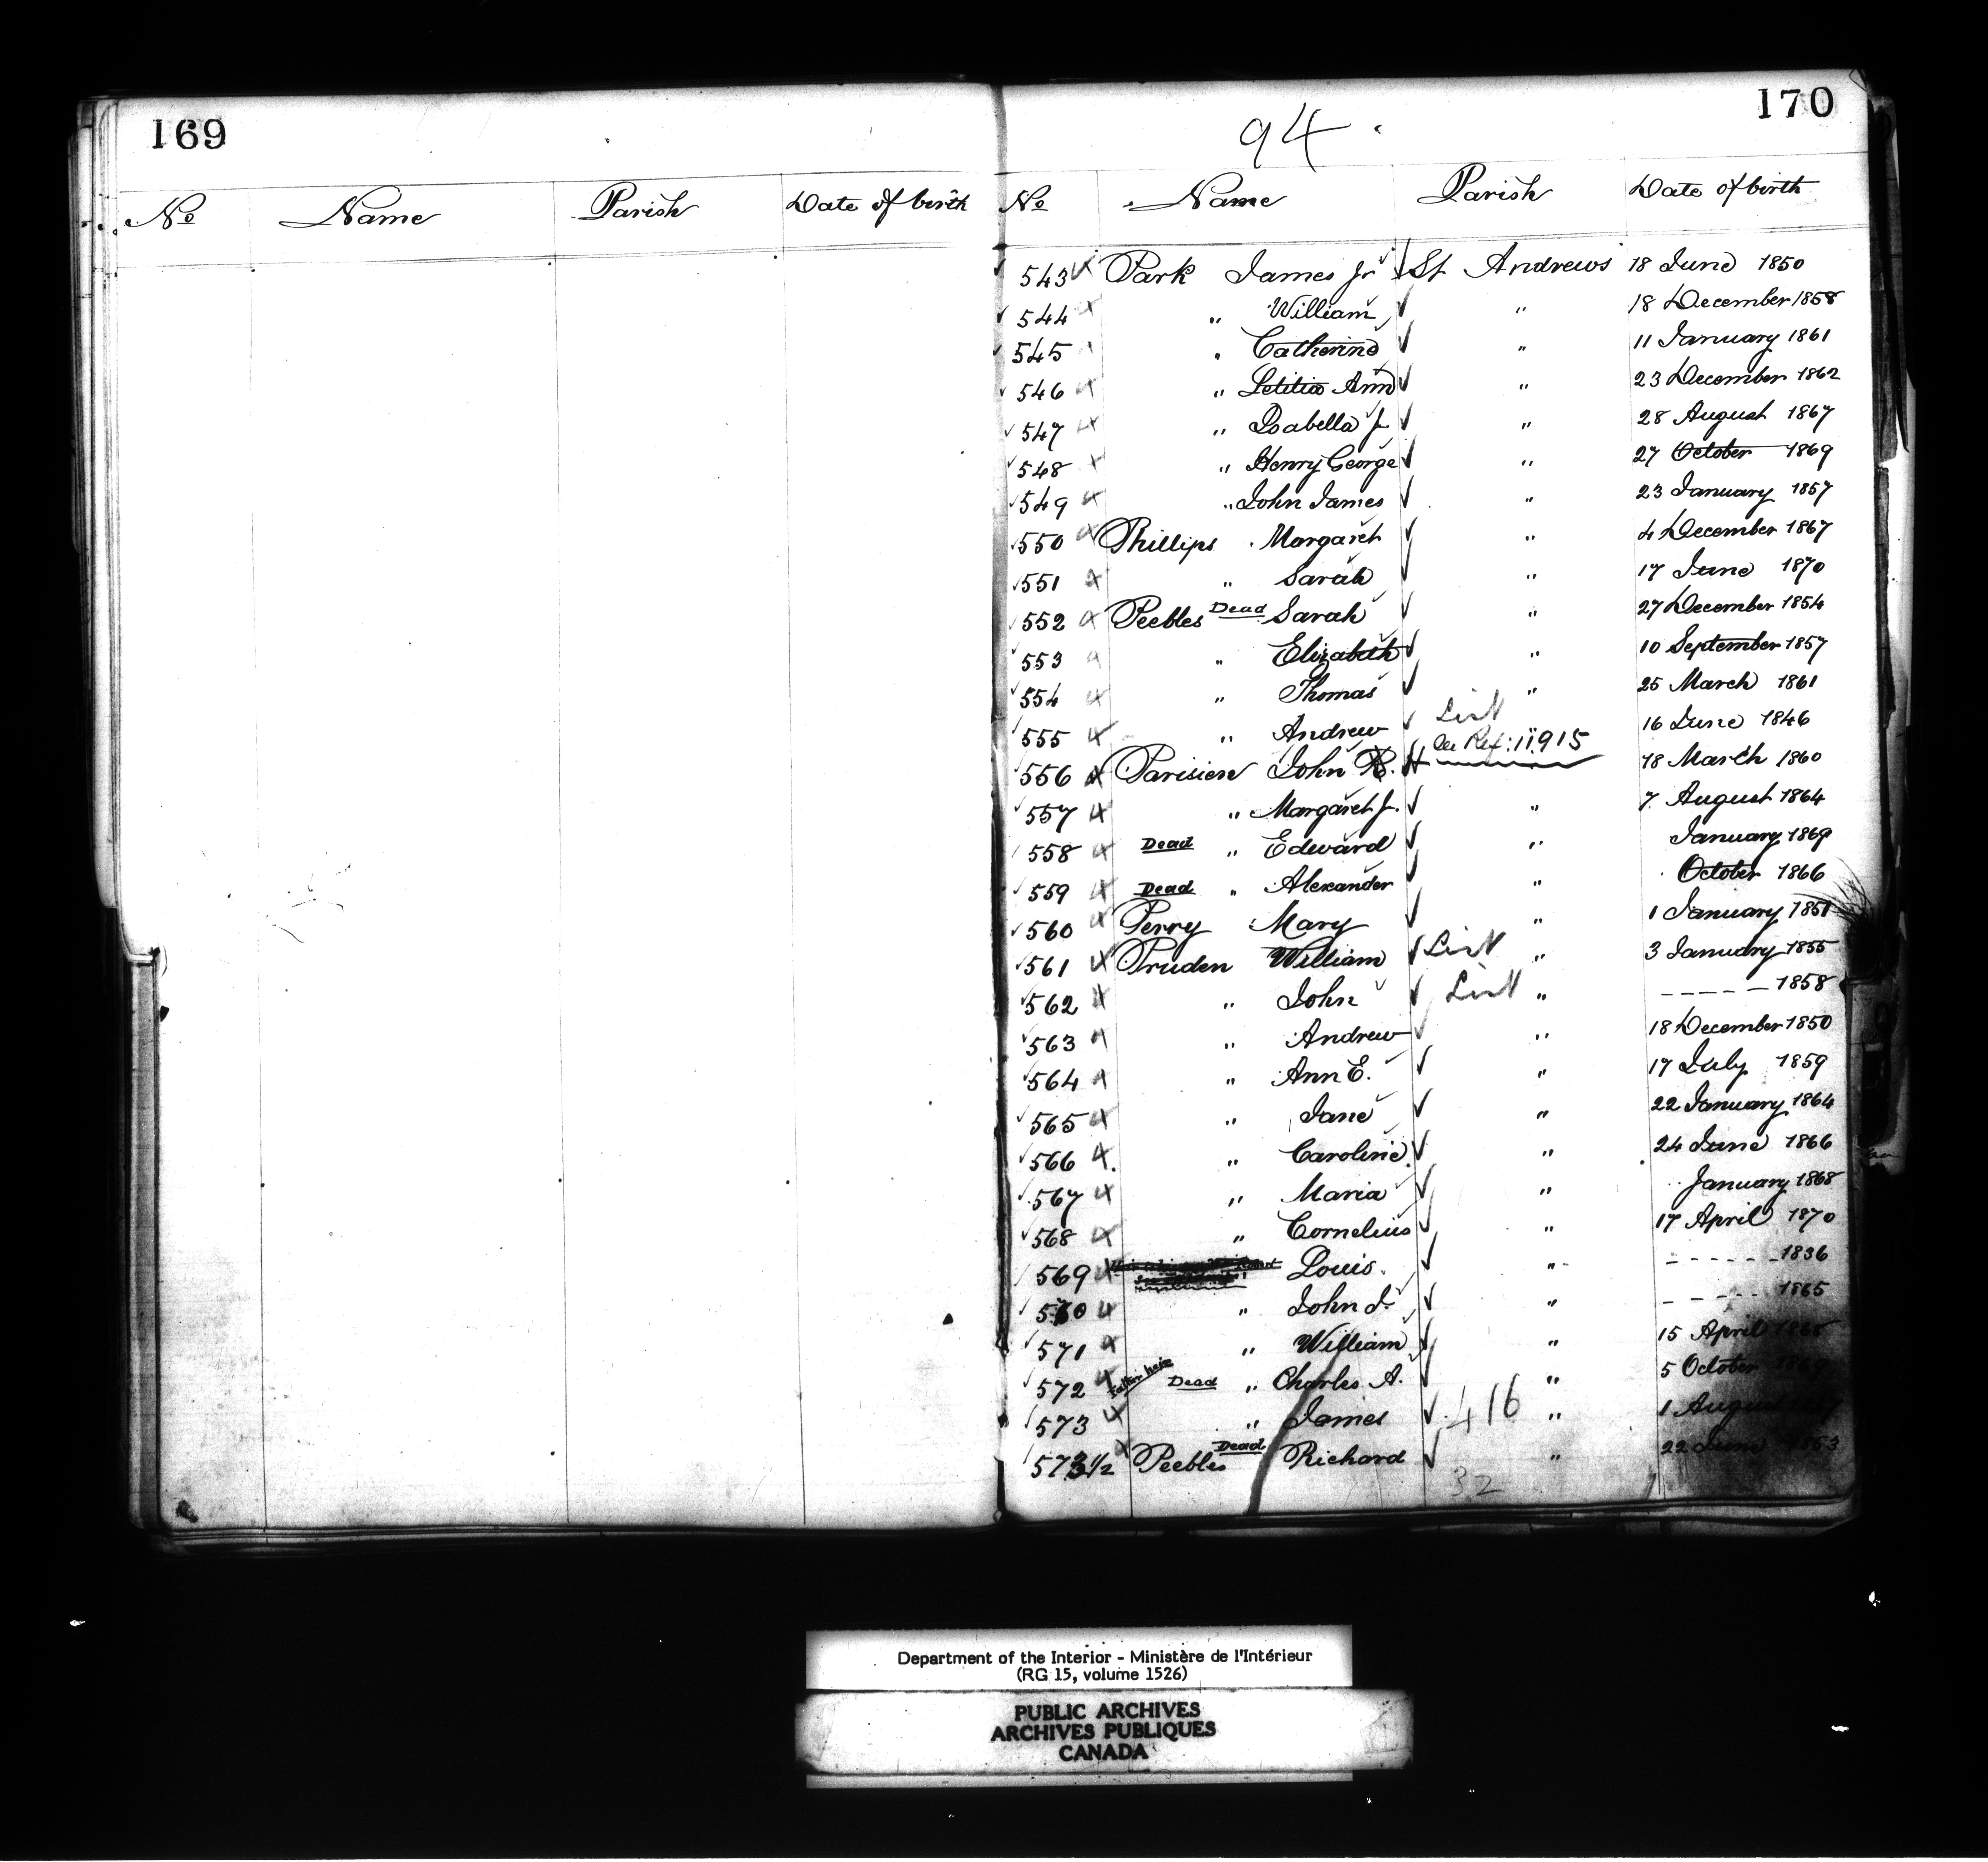 169
No Name Parish Date of birth
170
94
No Name Parish Date of birth
543 Park James Jr St Andrews 18 June 1850
544 " William " 18 December 1858
545 " Catherine " 11 January 1861
546 " Letitia Ann " 23 December 1862
547 " Isabella J. " 28 August 1867
548 " Henry George " 27 October 1869
549 " John James " 23 January 1857
550 Phillips Margaret " 4 December 1867
551 " Sarah " 17 June 1870
552 Peebles Dead Sarah " 27 December 1854
553 " Elizabeth " 10 September 1857
554 " Thomas " 25 March 1861
555 " Andrew List 16 June 1846
556 Parisien John R. Ref: 11915 18 March 1860
557 " Margaret J. " 7 August 1864
558 Dead " Edward " January 1869
559 Dead " Alexander " October 1866
560 Perry Mary " 1 January 1851
561 Pruden William List " 3 January 1855
562 " John List " - - - - - 1858
563 " Andrew " 18 December 1850
564 " Ann E. " 17 July 1859
565 " Jane " 22 January 1864
566 " Caroline " 24 June 1866
567 " Maria " January 1868
568 " Cornelius " 17 April 1870
569 Louis " - - - - - 1836
570 " John J. " - - - - - 1865
571 " William " 15 April
572 Father heir Dead " Charles A. " 5 October
573 " James 416 " 1 August
573 1/2 Peebles Dead Richard " 22 June 1853
32
Department of the Interior - Ministère de l'Intérieur
(RG 15, volume 1526)
PUBLIC ARCHIVES
ARCHIVES PUBLIQUES
CANADA